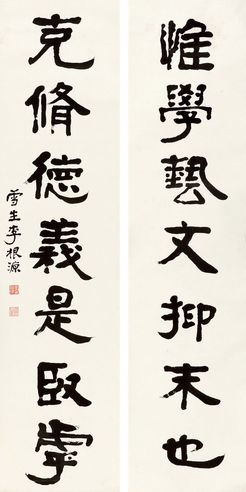 惟學藝文抑末也
克脩德義是臤虖
雪生李根源